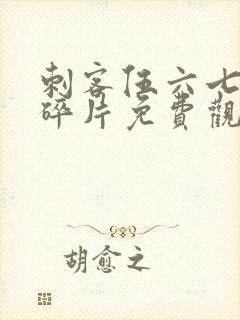 刺客伍六七
碎片免費觀
胡愈之